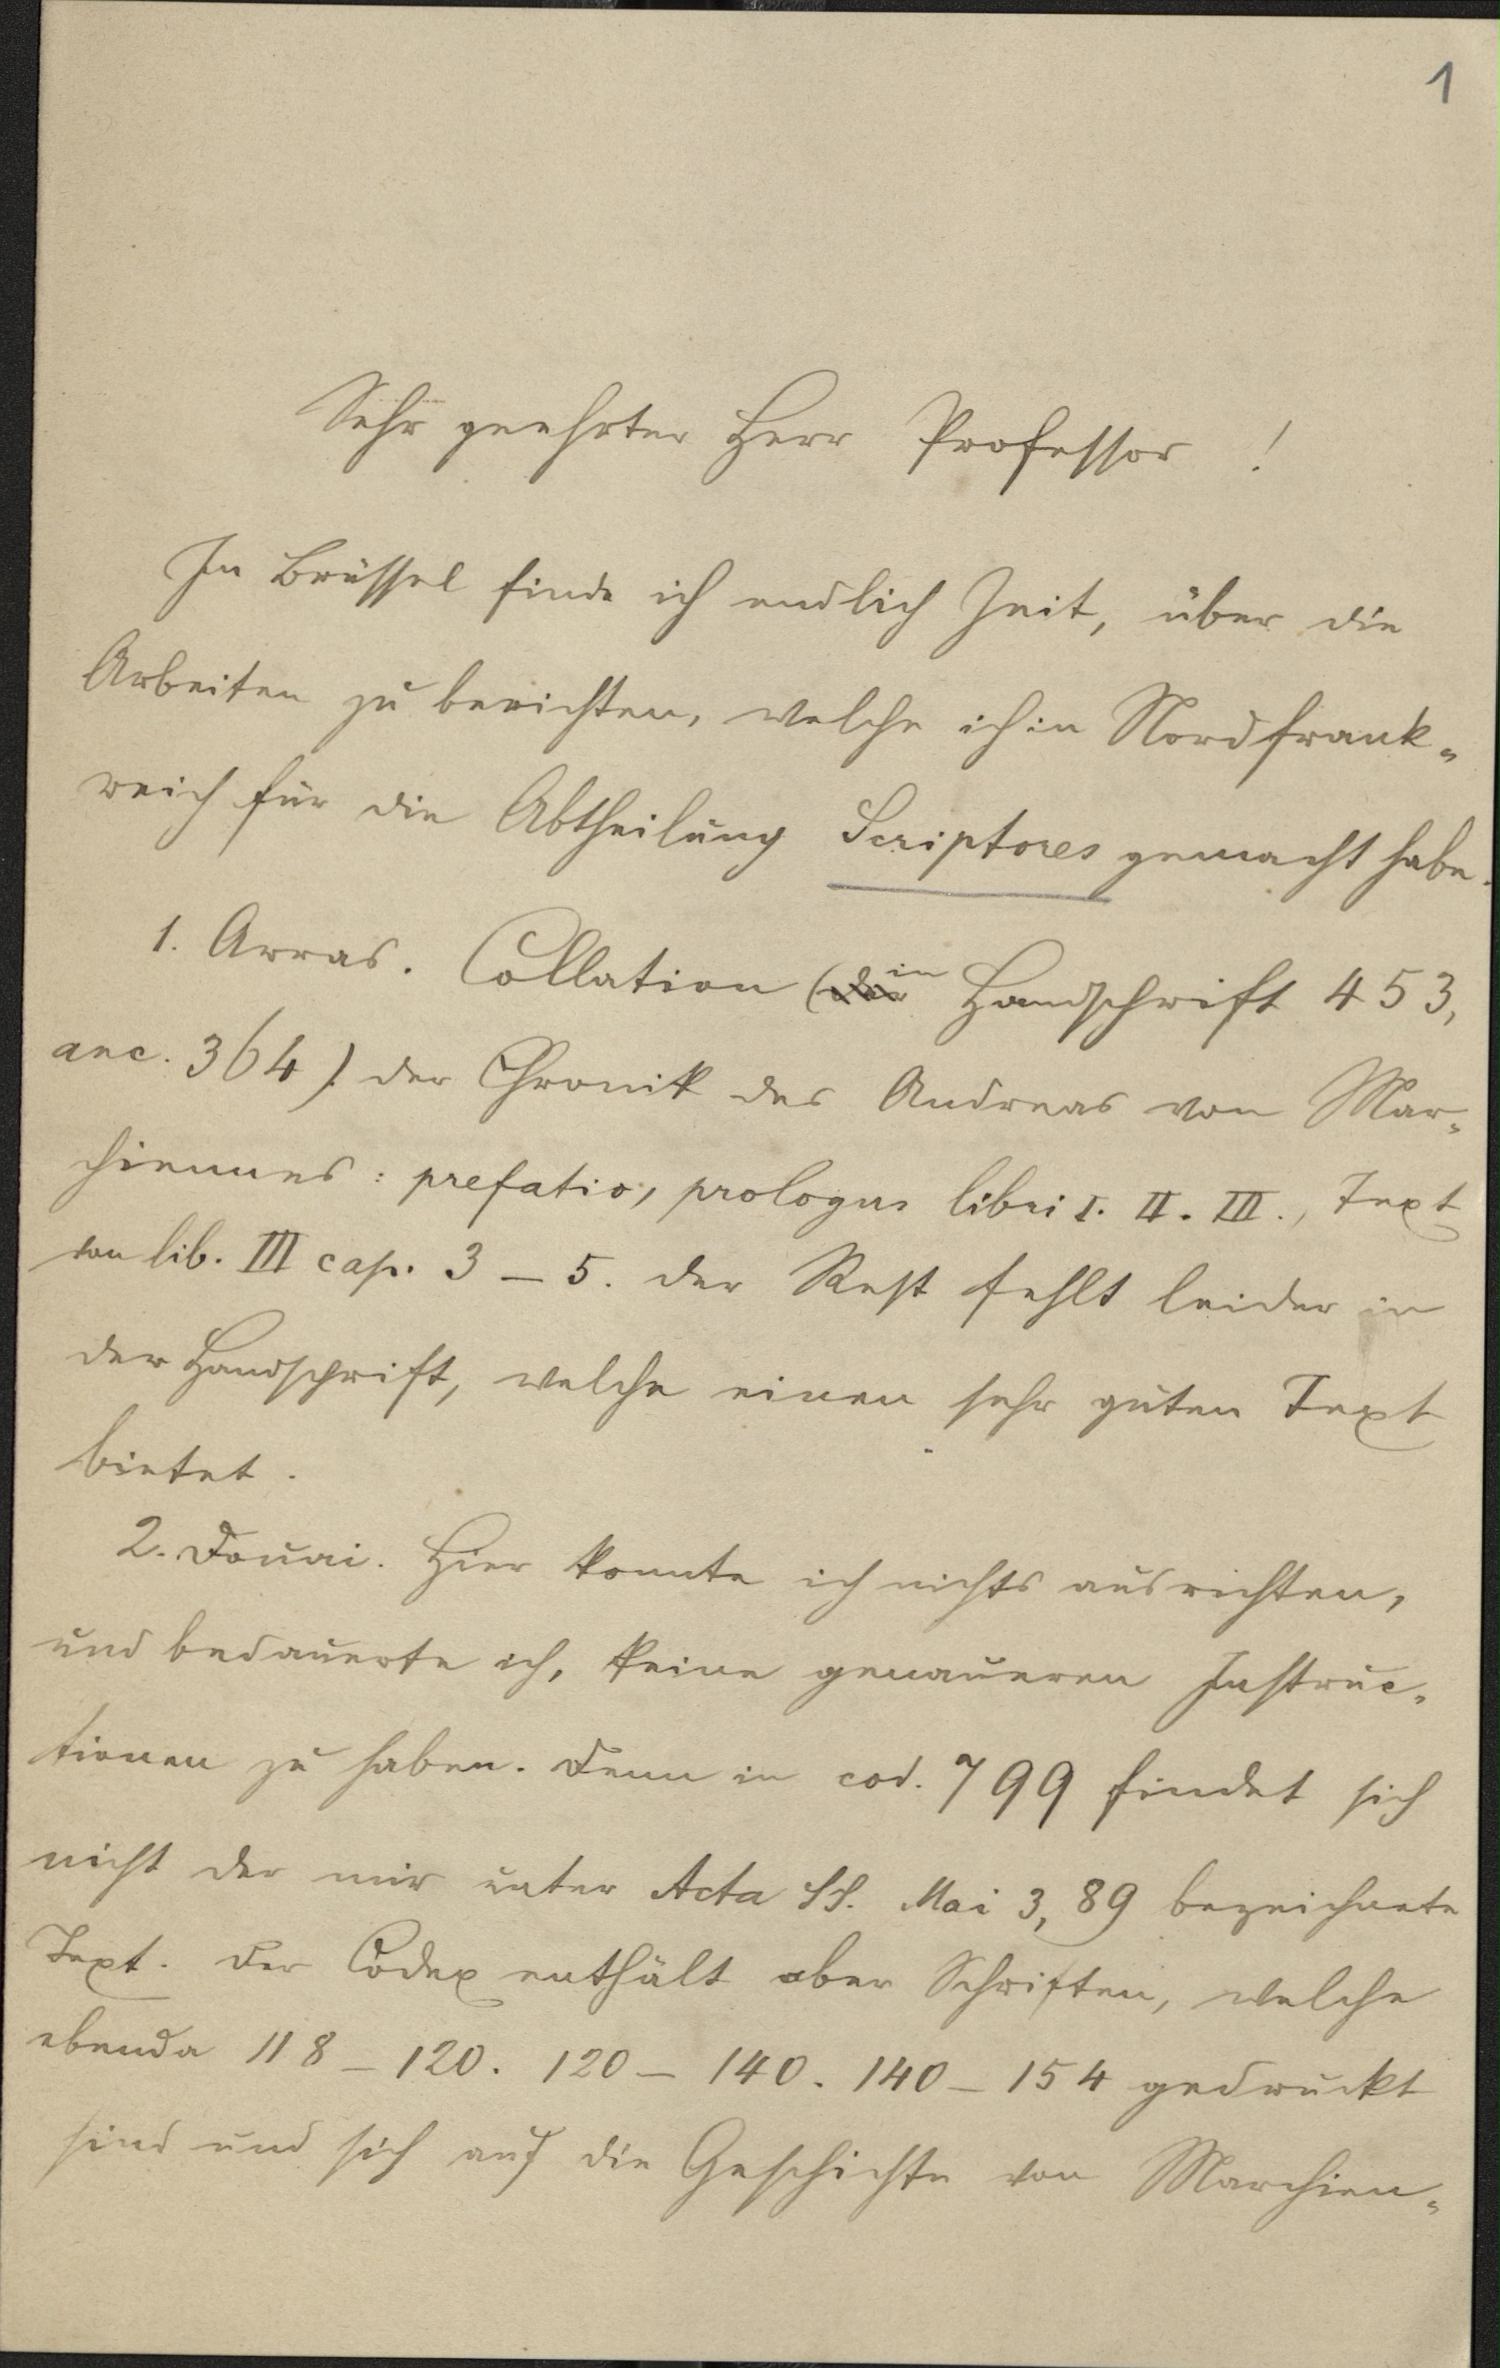 1
Sehr geehrter Herr Professor !
In Brüssel finde ich endlich Zeit, über die
Arbeiten zu berichten, welche ich in Nordfrank-
reich für die Abtheilung Scriptores gemacht habe.
1. Arras. Collation (der in Handschrift 453,
anc. 364) der Chronik des Andreas von Mar-
chiennes: prefatio, prologus libri I. II. III., Text
von lib. III cap. 3 – 5. der Rest fehlt leider in
der Handschrift, welche einen sehr guten Text
bietet.
2. Douai. Hier konnte ich nichts ausrichten,
und bedauerte ich, keine genaueren Instruc-
tionen zu haben. Denn in cod. 799 findet sich
nicht der mir unter Acta SS. Mai 3, 89 bezeichnete
Text. Der Codex enthält aber Schriften, welche
ebenda 118 – 120. 120 – 140. 140 – 154 gedruckt
sind und sich auf die Geschichte von Marchien-